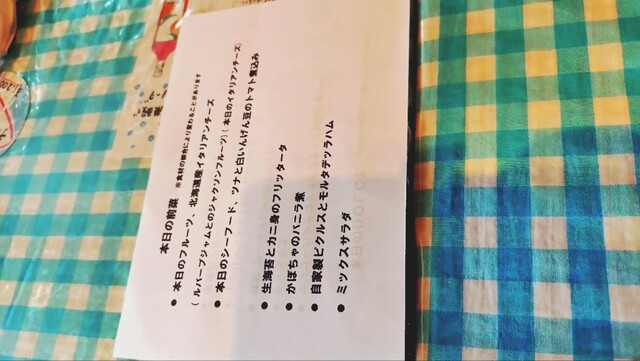 本日の前菜 ※食材の都合により変わることがあります
● 本日のフルーツ、北海道産イタリアンチーズ
(ルバーブジャムとのジャクソンフルーツ)(本日のイタリアンチーズ)
● 本日のシーフード、ツナと白いんげん豆のトマト煮込み
● 生海苔とカニ身のフリッタータ
● かぼちゃのバニラ煮
● 自家製ピクルスとモルタデッラハム
● ミックスサラダ